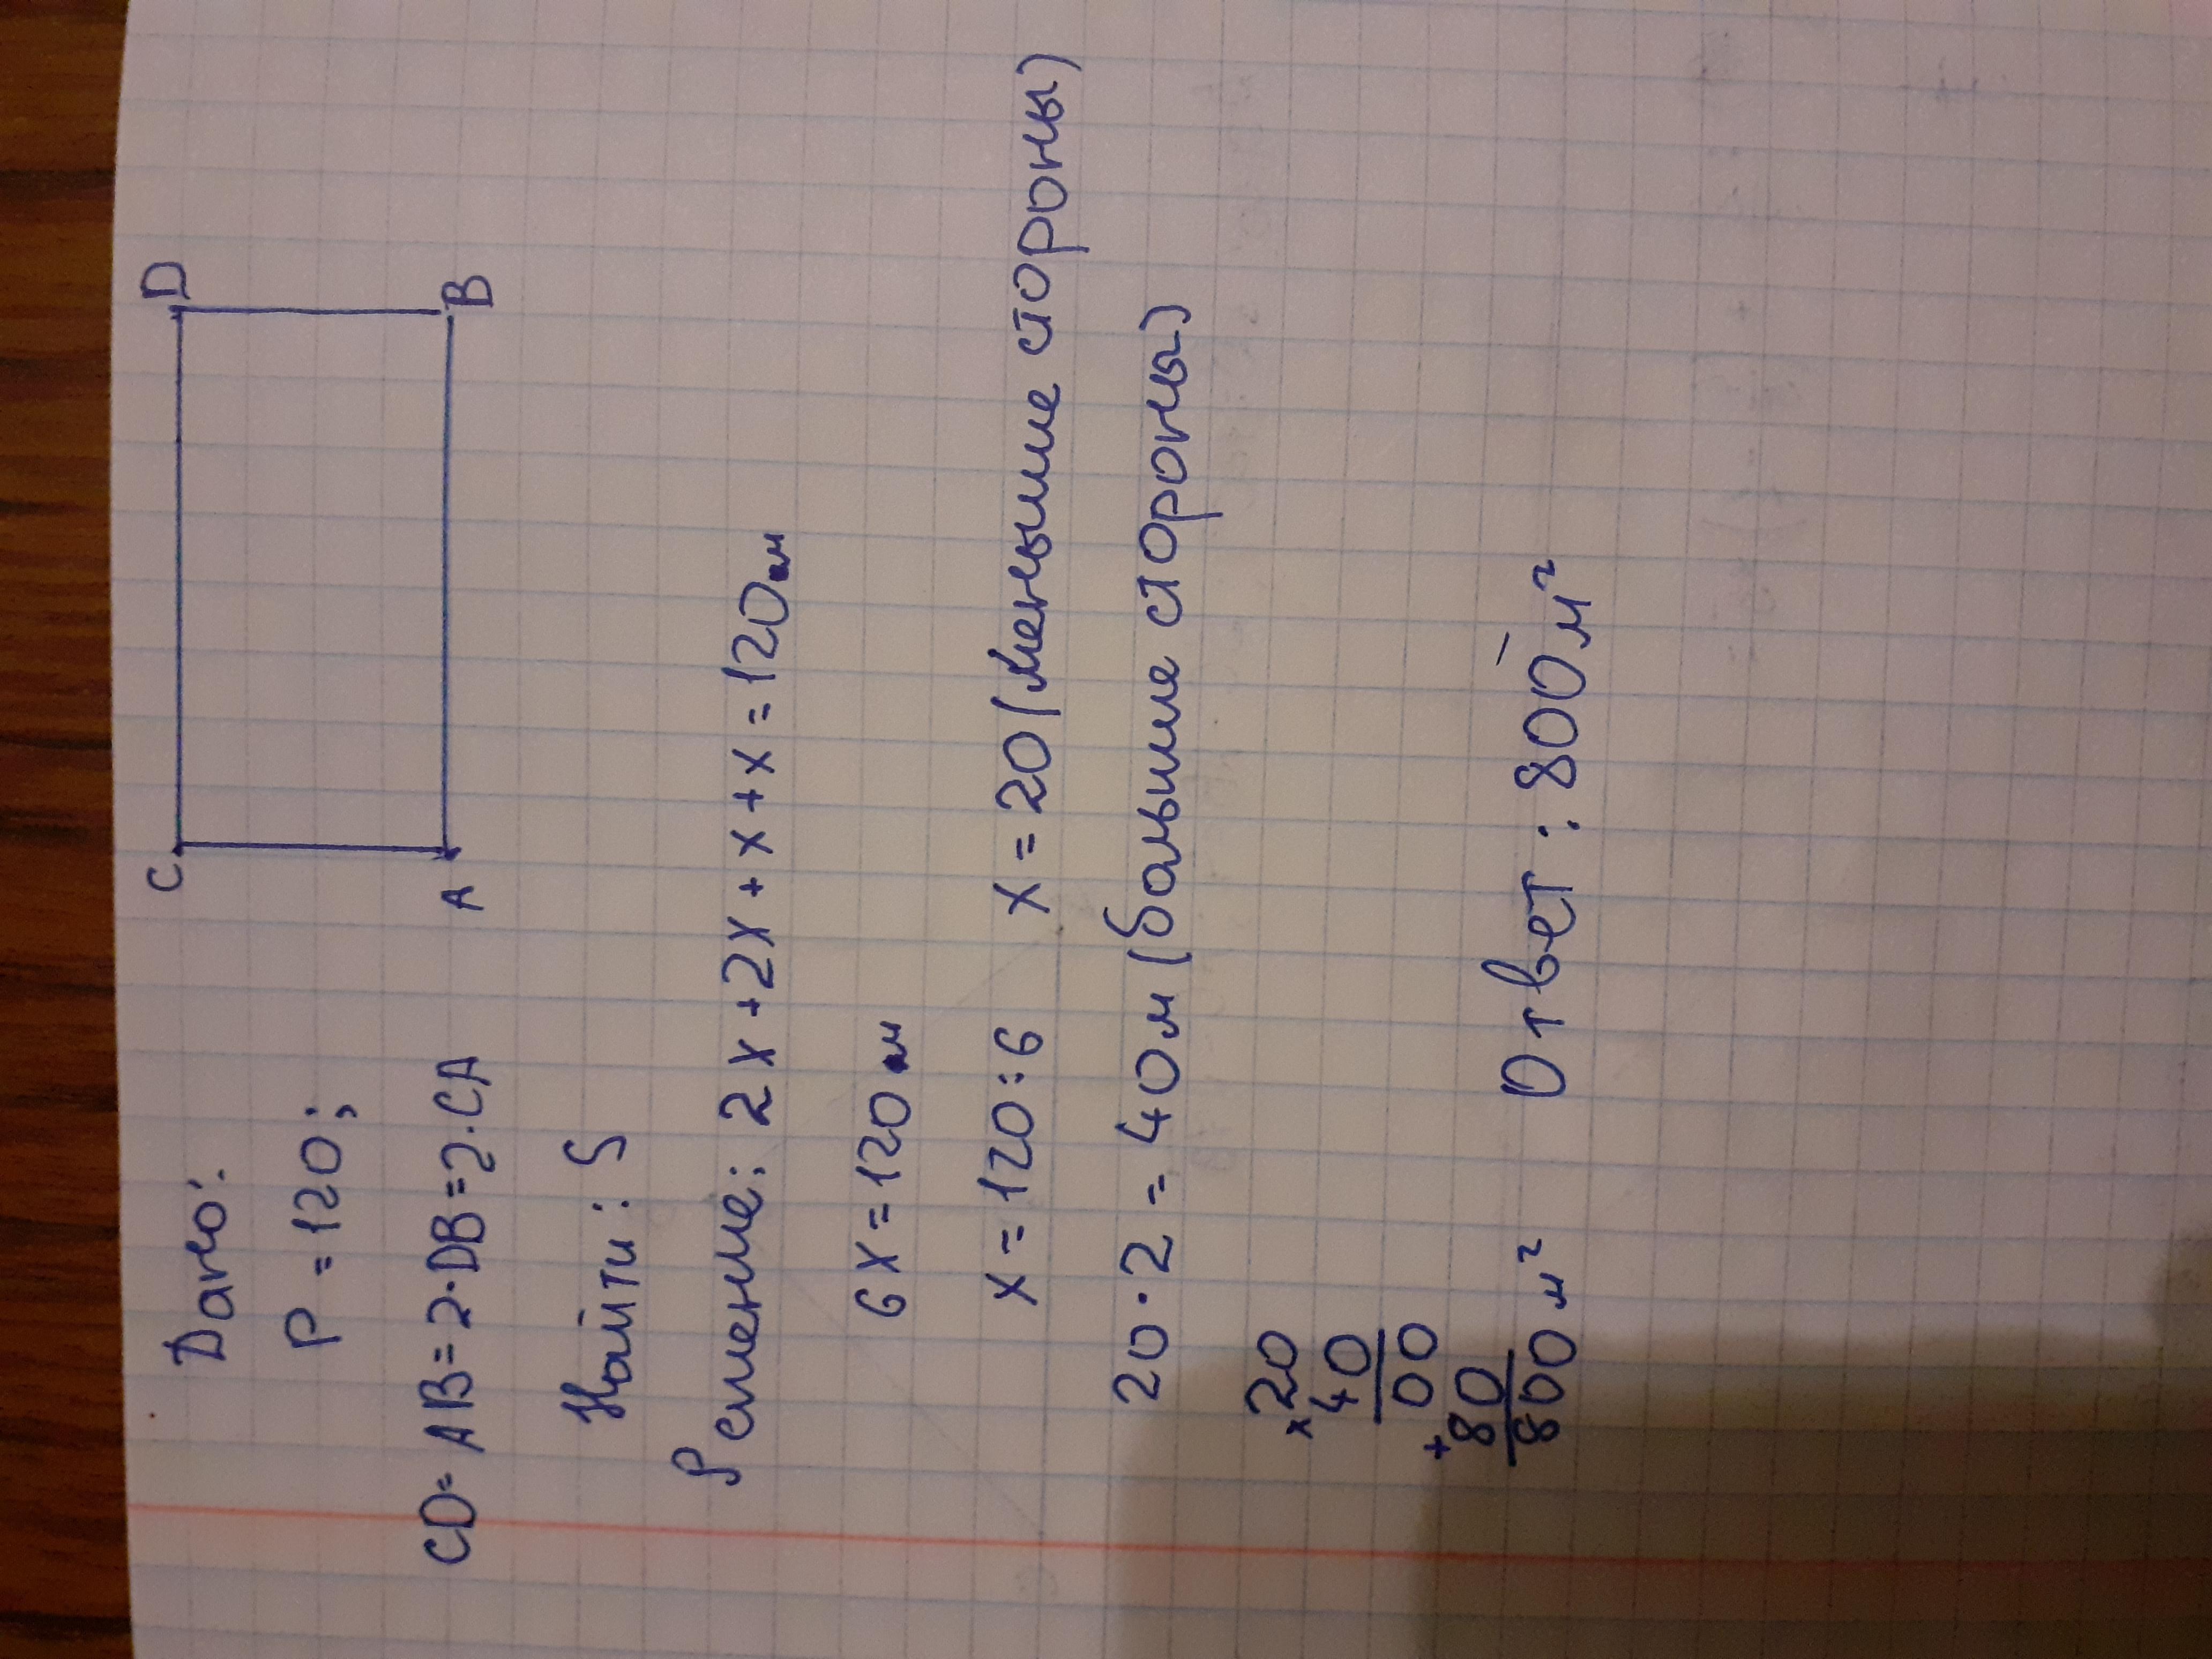 Дано:
C D
P = 120;
CD = AB = 2·DB = 2·CA
A B
Найти: S
Решение: 2x + 2x + x + x = 120м
6x = 120 м
x = 120:6 x = 20 (меньшие стороны)
20·2 = 40м (большие стороны)
×20
40
00
+80
800 м² Ответ: 800 м²